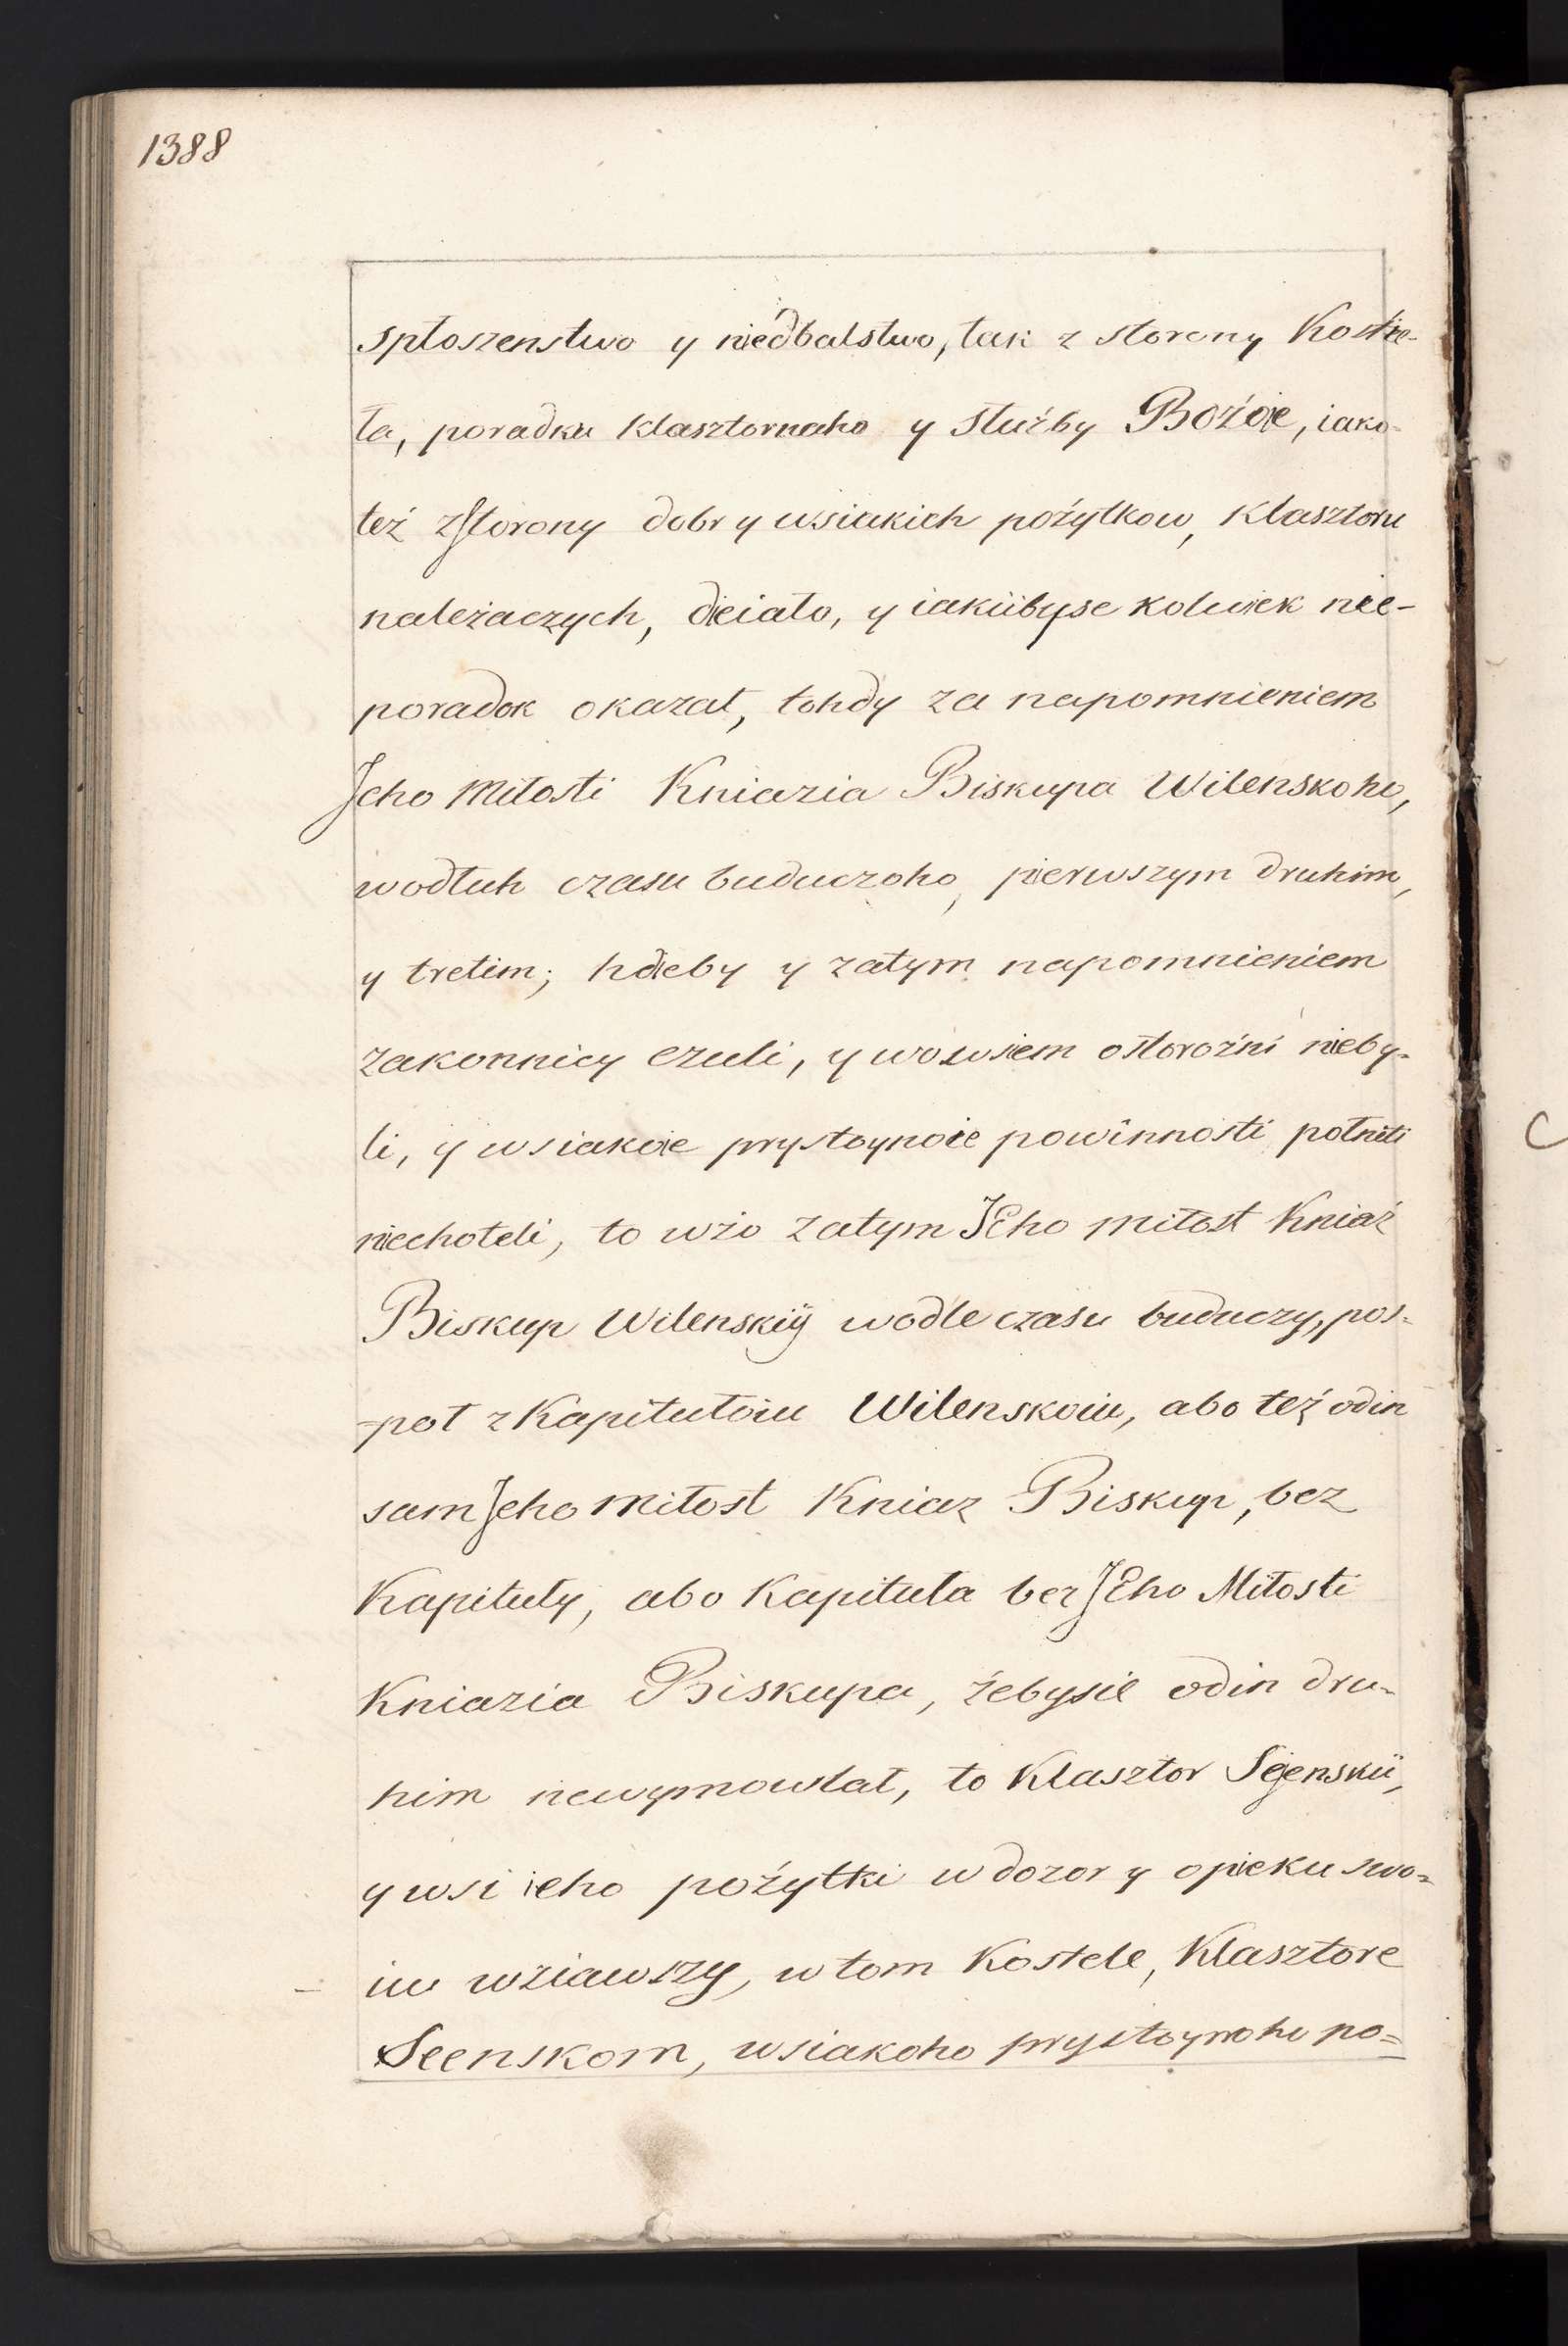 1388
spłoszenstwo y niedbalstwo, tak z storony Kostie-
ła, poradku klasztornaho y Służby Bożoie, iako-
też zstorony dobr y wsiakich pożytkow, klasztoru
należaczych, dieiało, y iakiibyse kolwiek nie-
poradok okazał, tohdy za napomnieniem
Jeho Miłosti Kniazia Biskupa Wilenskoho,
wodłuh czasu buduczoho, pierwszym druhim,
y tretim; hdieby y zatym napomnieniem
zakonnicy czuli, y wowsiem ostorożni nieby-
li, y wsiakoie prystoynoie powinnosti połniti
niechoteli, to wżo zatym JEho miłost Kniaź
Biskup Wilenskiy wodle czasu buduczy, pos-
-poł z Kapitułoiu Wilenskoiu, abo też odin
sam Jeho Miłost Kniaz Biskup, bez
Kapituły, abo Kapituła bez JEho Miłosti
Kniazia Biskupa, żebysie odin dru-
him newymowlał, to Klasztor Sejenskii,
y wsi ieho pożytki w dozor y opieku swo-
iu wziawszy, w tom Kostele, Klasztore
Seenskom, wsiakoho prystoynoho po-